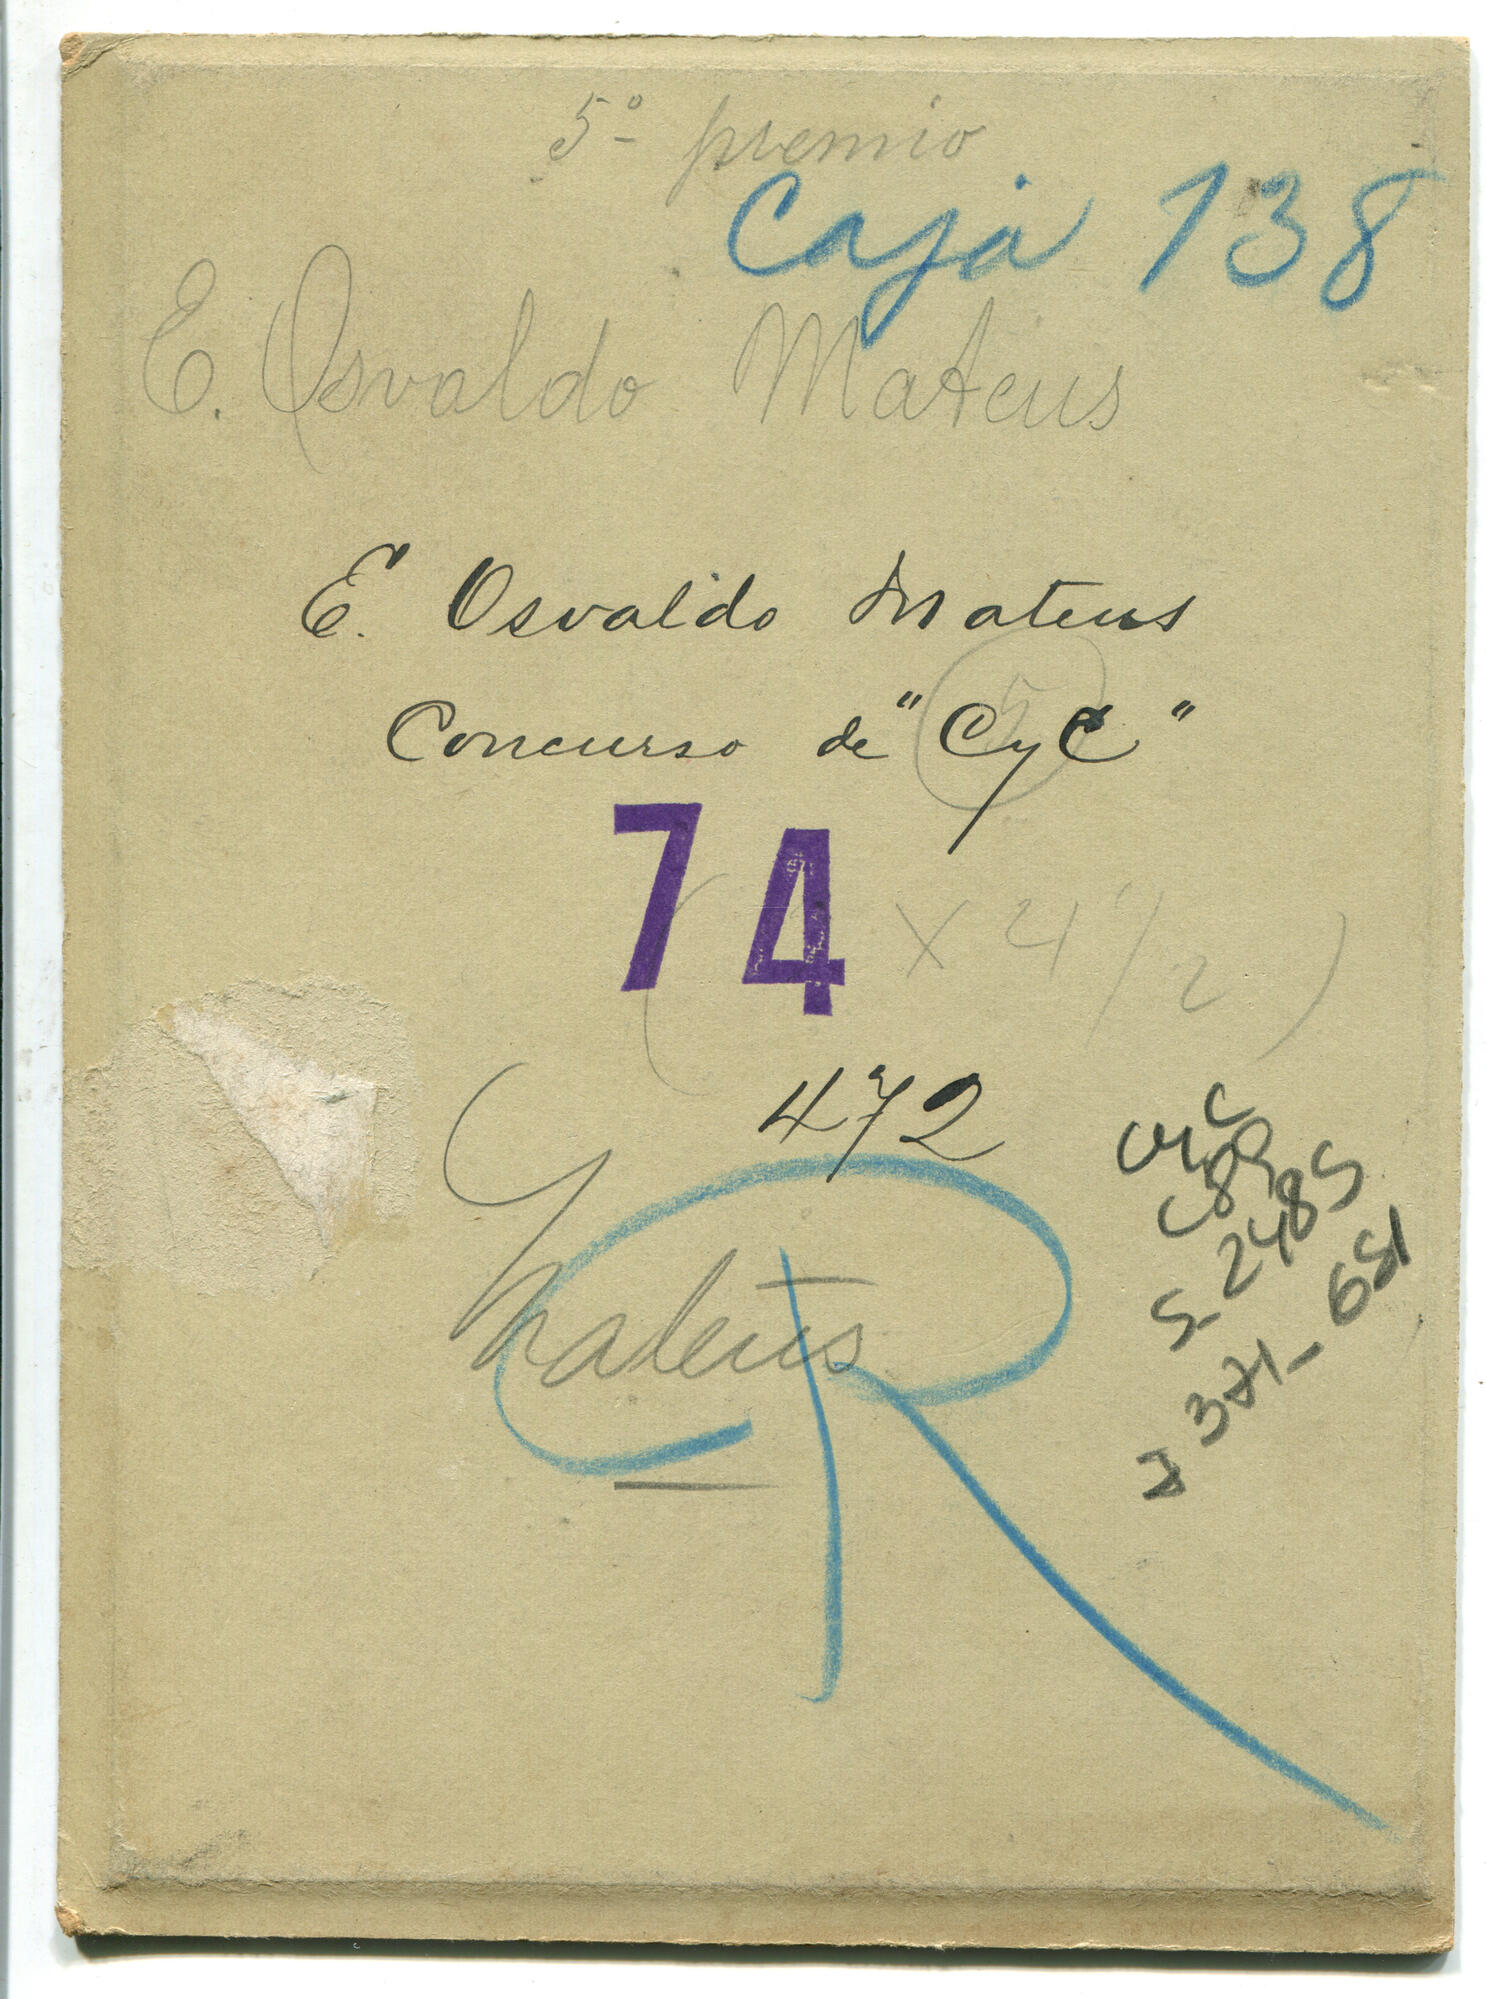 5º premio
Caja 138
E. Osvaldo Mateus
E. Osvaldo Mateus
Concurso de "CyC"
5
74
( x 4 1/2 )
472
Mateus
R
CyC
C89
S-2485
J 371-651